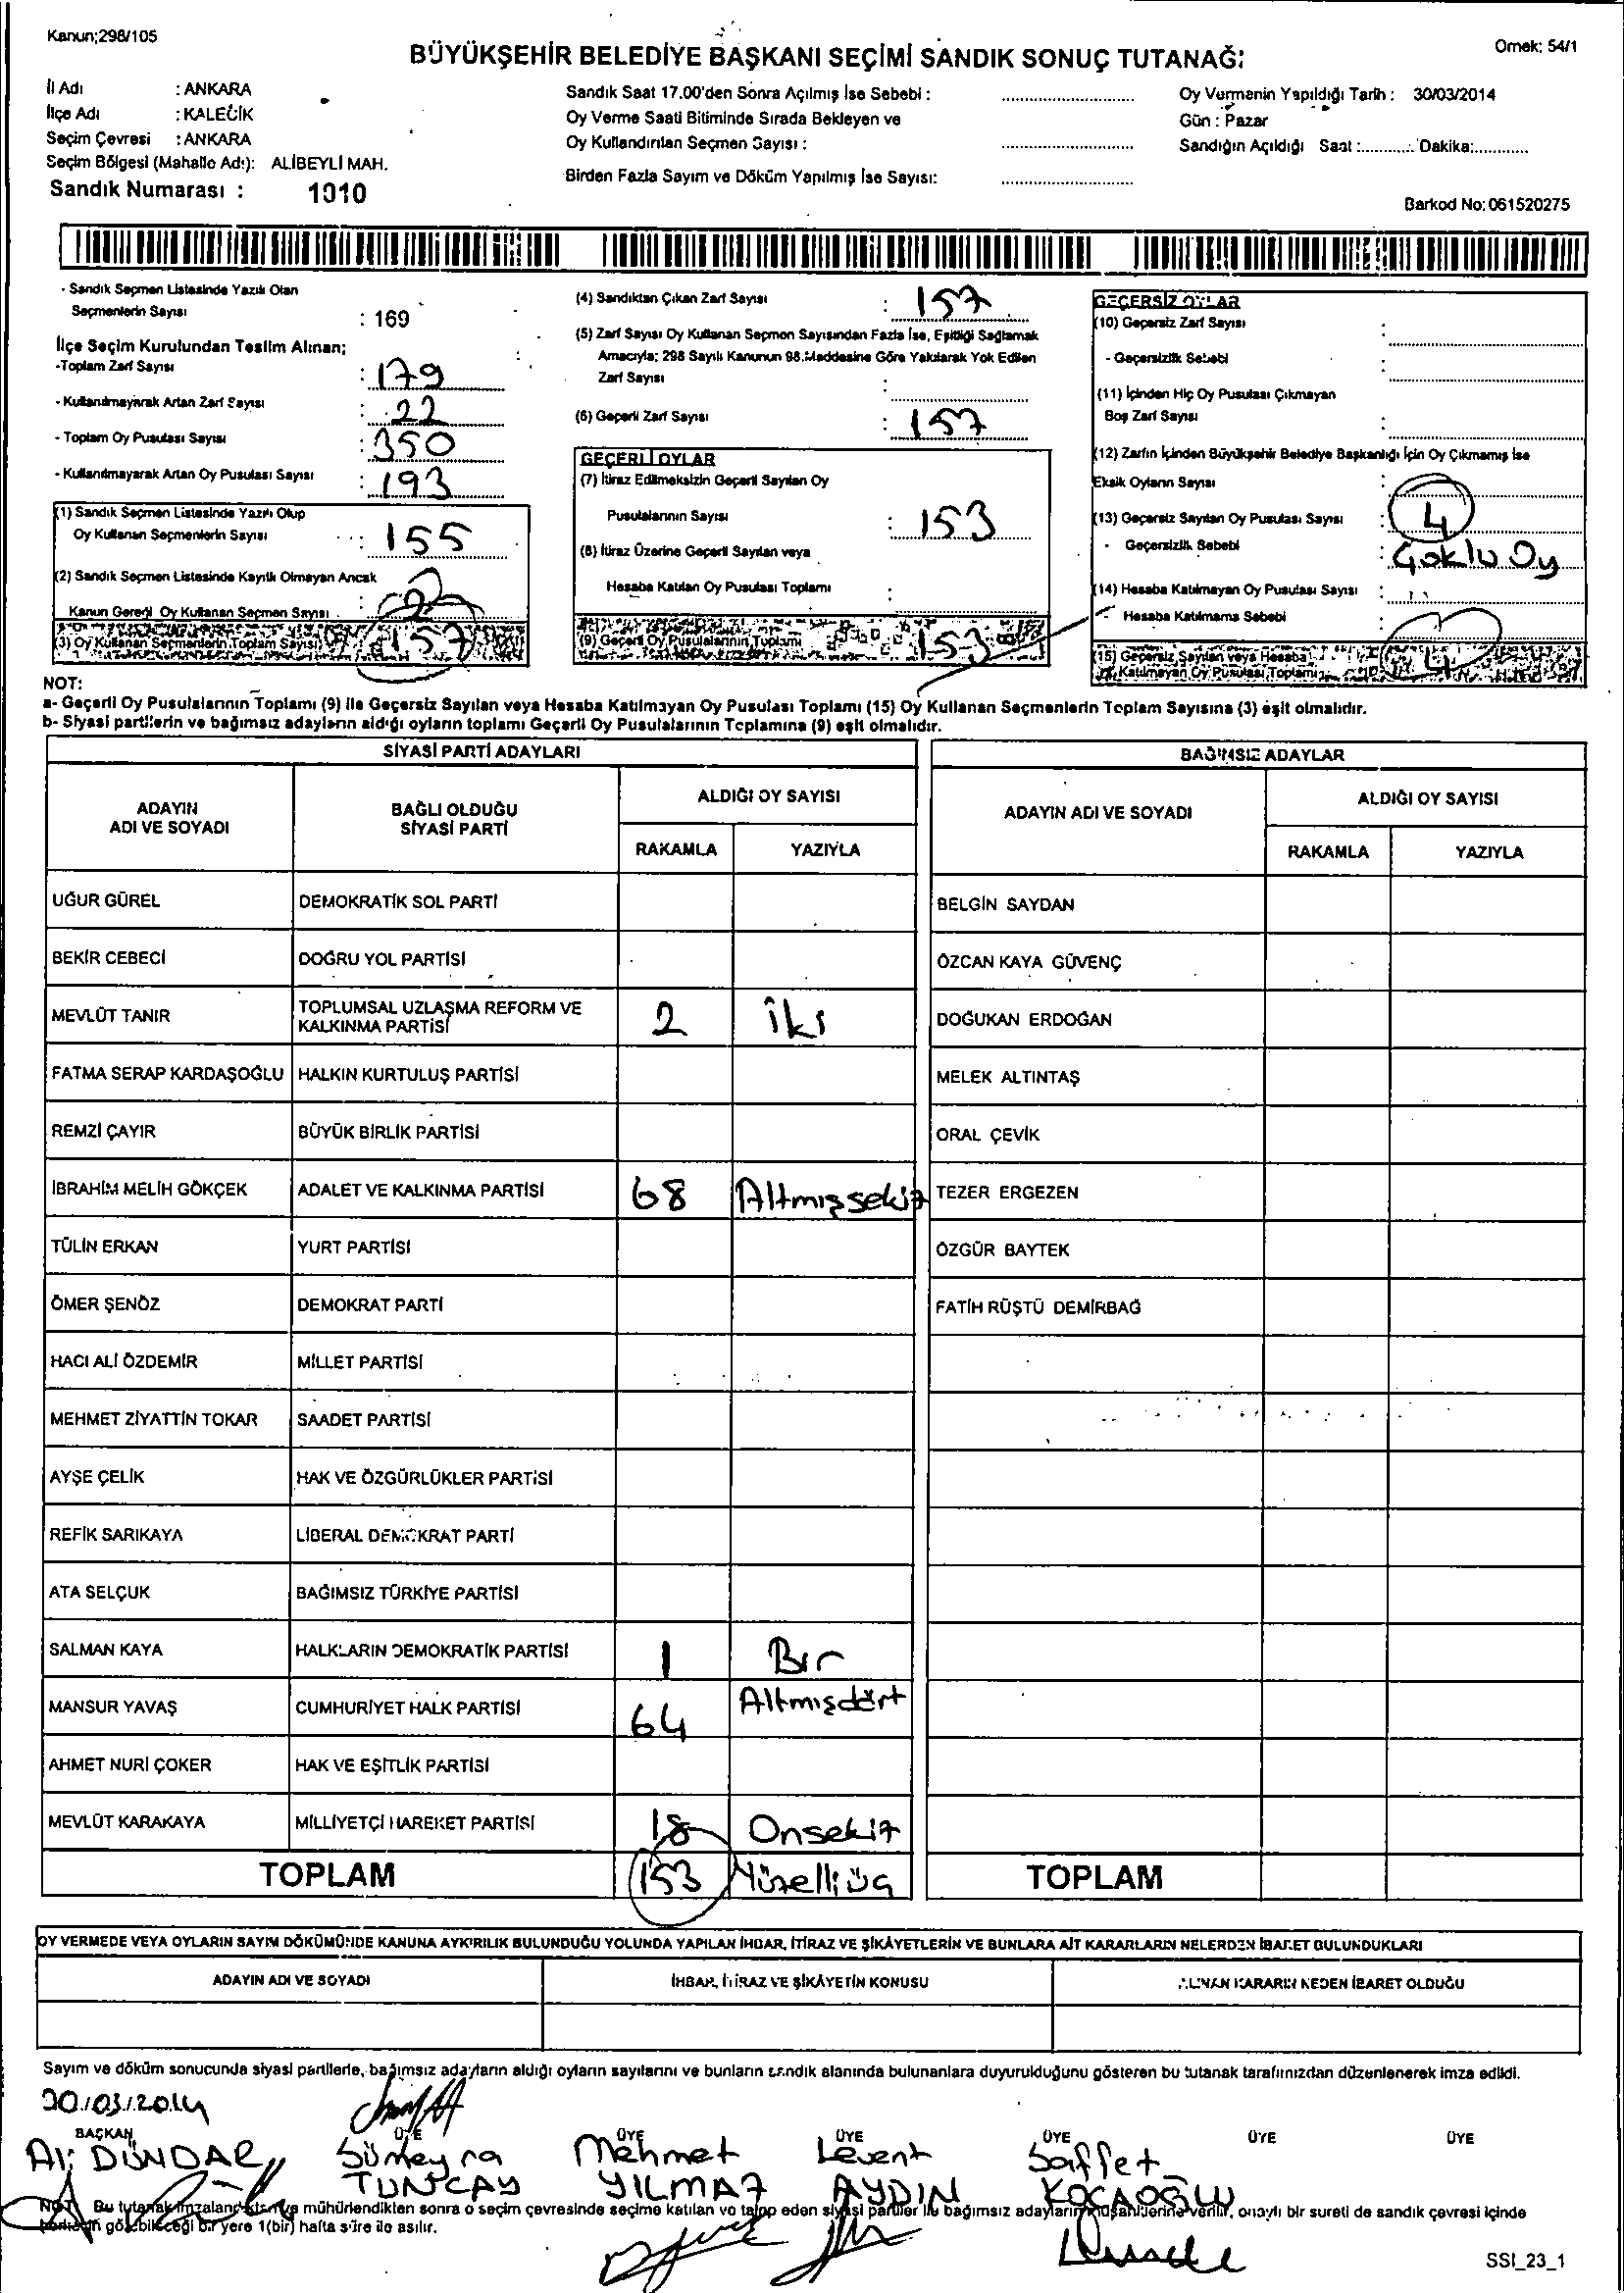 Kanun;298/105
Ornek: 54/1
BÜYÜKŞEHİR BELEDİYE BAŞKANI SEÇİMİ SANDIK SONUÇ TUTANAĞI
İl Adı : ANKARA
İlçe Adı : KALECİK
Seçim Çevresi : ANKARA
Seçim Bölgesi (Mahalle Adı): ALİBEYLİ MAH.
Sandık Numarası : 1010
Sandık Saat 17.00'den Sonra Açılmış İse Sebebi :
Oy Verme Saati Bitiminde Sırada Bekleyen ve
Oy Kullandırılan Seçmen Sayısı :
Birden Fazla Sayım ve Döküm Yapılmış İse Sayısı:
Oy Vermenin Yapıldığı Tarih : 30/03/2014
Gün : Pazar
Sandığın Açıldığı Saat :............ Dakika:............
Barkod No: 061520275
- Sandık Seçmen Listesinde Yazılı Olan
Seçmenlerin Sayısı : 169
İlçe Seçim Kurulundan Teslim Alınan;
-Toplam Zarf Sayısı : 179
- Kullanılmayarak Artan Zarf Sayısı : 22
- Toplam Oy Pusulası Sayısı : 350
- Kullanılmayarak Artan Oy Pusulası Sayısı : 193
(1) Sandık Seçmen Listesinde Yazılı Olup
Oy Kullanan Seçmenlerin Sayısı : 155
(2) Sandık Seçmen Listesinde Kayıtlı Olmayan Ancak
Kanun Gereği Oy Kullanan Seçmen Sayısı : 2
(3) Oy Kullanan Seçmenlerin Toplam Sayısı 157
(4) Sandıktan Çıkan Zarf Sayısı : 157
(5) Zarf Sayısı Oy Kullanan Seçmen Sayısından Fazla İse, Eşitliği Sağlamak
Amacıyla; 298 Sayılı Kanunun 98.Maddesine Göre Yakılarak Yok Edilen
Zarf Sayısı :
(6) Geçerli Zarf Sayısı : 157
GEÇERLİ OYLAR
(7) İtiraz Edilmeksizin Geçerli Sayılan Oy
Pusulalarının Sayısı : 153
(8) İtiraz Üzerine Geçerli Sayılan veya
Hesaba Katılan Oy Pusulası Toplamı :
(9) Geçerli Oy Pusulalarının Toplamı 153
GEÇERSİZ OYLAR
(10) Geçersiz Zarf Sayısı :
- Geçersizlik Sebebi :
(11) İçinden Hiç Oy Pusulası Çıkmayan
Boş Zarf Sayısı :
(12) Zarfın İçinden Büyükşehir Belediye Başkanlığı İçin Oy Çıkmamış İse
Eksik Oyların Sayısı :
(13) Geçersiz Sayılan Oy Pusulası Sayısı : 4
- Geçersizlik Sebebi : Çoklu Oy
(14) Hesaba Katılmayan Oy Pusulası Sayısı :
- Hesaba Katılmama Sebebi :
(15) Geçersiz Sayılan veya Hesaba
Katılmayan Oy Pusulası Toplamı 4
NOT:
a- Geçerli Oy Pusulalarının Toplamı (9) ile Geçersiz Sayılan veya Hesaba Katılmayan Oy Pusulası Toplamı (15) Oy Kullanan Seçmenlerin Toplam Sayısına (3) eşit olmalıdır.
b- Siyasi partilerin ve bağımsız adayların aldığı oyların toplamı Geçerli Oy Pusulalarının Toplamına (9) eşit olmalıdır.
SİYASİ PARTİ ADAYLARI
ADAYIN ADI VE SOYADI
BAĞLI OLDUĞU SİYASİ PARTİ
ALDIĞI OY SAYISI
RAKAMLA YAZIYLA
UĞUR GÜREL DEMOKRATİK SOL PARTİ
BEKİR CEBECİ DOĞRU YOL PARTİSİ
MEVLÜT TANIR TOPLUMSAL UZLAŞMA REFORM VE KALKINMA PARTİSİ 2 iki
FATMA SERAP KARDAŞOĞLU HALKIN KURTULUŞ PARTİSİ
REMZİ ÇAYIR BÜYÜK BİRLİK PARTİSİ
İBRAHİM MELİH GÖKÇEK ADALET VE KALKINMA PARTİSİ 68 Altmışsekiz
TÜLİN ERKAN YURT PARTİSİ
ÖMER ŞENÖZ DEMOKRAT PARTİ
HACI ALİ ÖZDEMİR MİLLET PARTİSİ
MEHMET ZİYATTİN TOKAR SAADET PARTİSİ
AYŞE ÇELİK HAK VE ÖZGÜRLÜKLER PARTİSİ
REFİK SARIKAYA LİBERAL DEMOKRAT PARTİ
ATA SELÇUK BAĞIMSIZ TÜRKİYE PARTİSİ
SALMAN KAYA HALKLARIN DEMOKRATİK PARTİSİ 1 Bir
MANSUR YAVAŞ CUMHURİYET HALK PARTİSİ 64 Altmışdört
AHMET NURİ ÇOKER HAK VE EŞİTLİK PARTİSİ
MEVLÜT KARAKAYA MİLLİYETÇİ HAREKET PARTİSİ 18 Onsekiz
TOPLAM 153 Yüzelliüç
BAĞIMSIZ ADAYLAR
ADAYIN ADI VE SOYADI
ALDIĞI OY SAYISI
RAKAMLA YAZIYLA
BELGİN SAYDAN
ÖZCAN KAYA GÜVENÇ
DOĞUKAN ERDOĞAN
MELEK ALTINTAŞ
ORAL ÇEVİK
TEZER ERGEZEN
ÖZGÜR BAYTEK
FATİH RÜŞTÜ DEMİRBAĞ
TOPLAM
OY VERMEDE VEYA OYLARIN SAYIM DÖKÜMÜNDE KANUNA AYKIRILIK BULUNDUĞU YOLUNDA YAPILAN İHBAR, İTİRAZ VE ŞİKÂYETLERİN VE BUNLARA AİT KARARLARIN NELERDEN İBARET BULUNDUKLARI
ADAYIN ADI VE SOYADI
İHBAR, İTİRAZ VE ŞİKÂYETİN KONUSU
ALINAN KARARIN NEDEN İBARET OLDUĞU
Sayım ve döküm sonucunda siyasi partilerle, bağımsız adayların aldığı oyların sayılarını ve bunların sandık alanında bulunanlara duyurulduğunu gösteren bu tutanak tarafımızdan düzenlenerek imza edildi.
30/03/2014
BAŞKAN ÜYE ÜYE ÜYE ÜYE ÜYE ÜYE
Ali DÜNDAR Sümeyra TUNCAY Mehmet YILMAZ Levent AYDIN Saffet KOCAOĞLU
NOT: Bu tutanak imzalandıktan ve mühürlendikten sonra o seçim çevresinde seçime katılan ve talep eden siyasi partiler ile bağımsız adayların müşahitlerine verilir, onaylı bir sureti de sandık çevresi içinde
herkesin görebileceği bir yere 1(bir) hafta süre ile asılır.
SSI_23_1